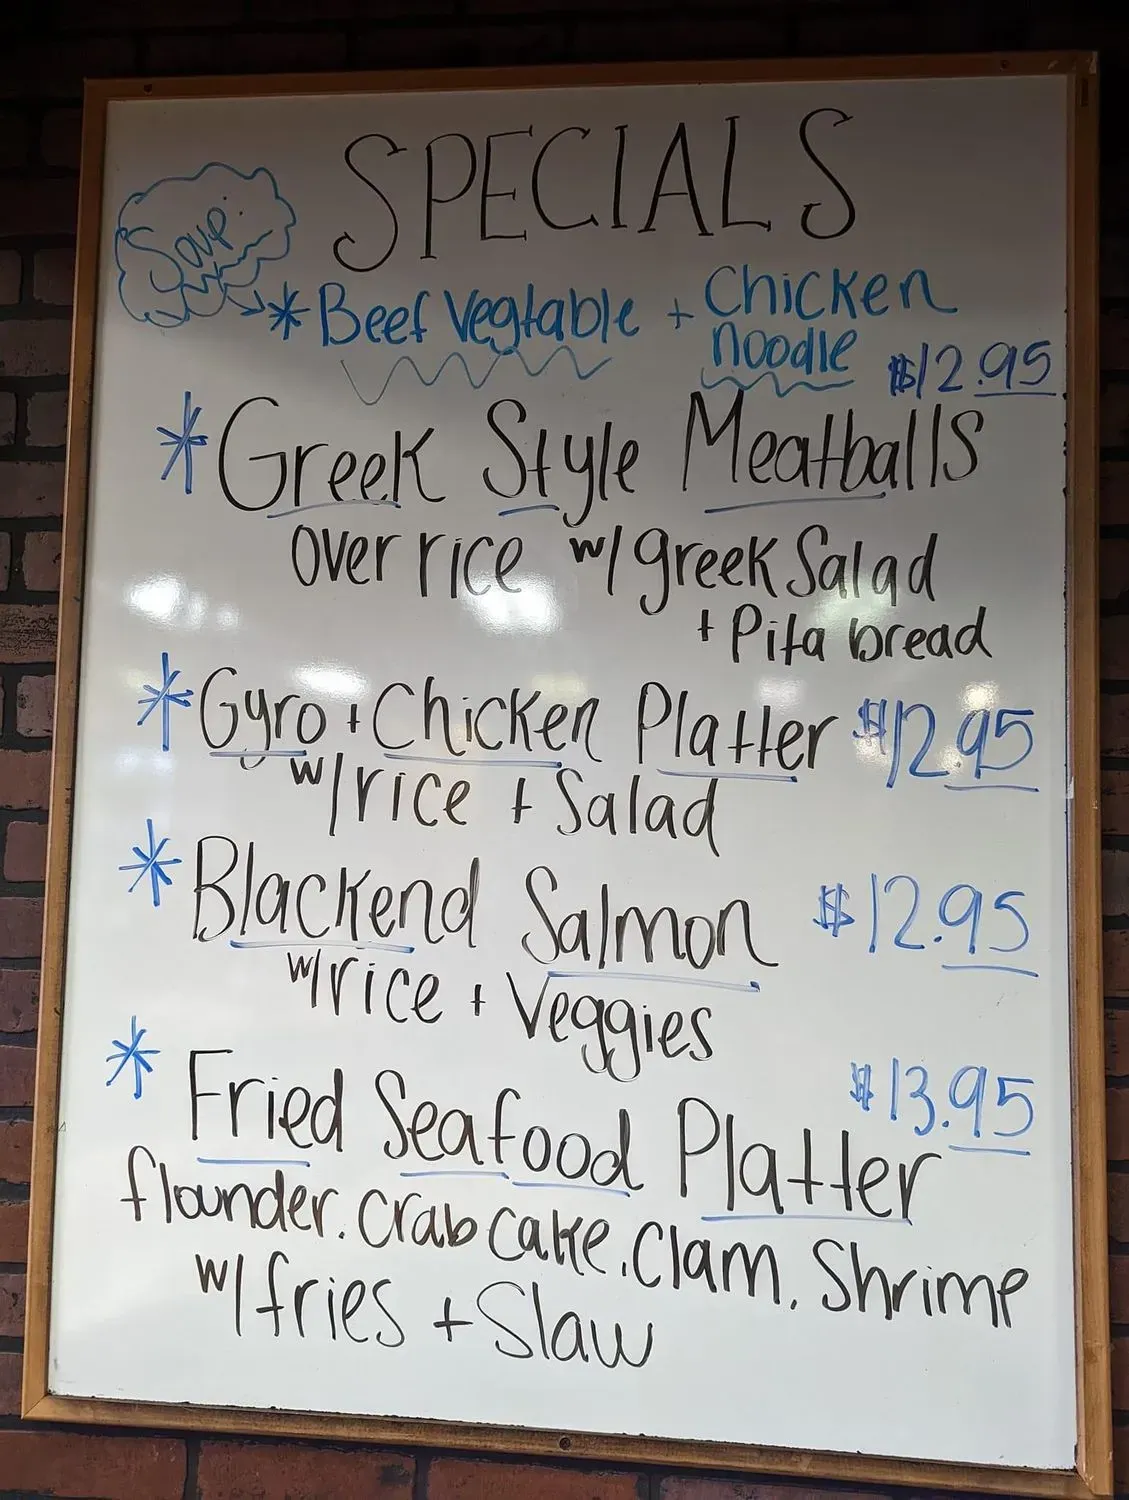 SPECIALS
Soup:
* Beef Vegtable + Chicken
noodle
$12.95
* Greek Style Meatballs
over rice w/ greek Salad
+ Pita bread
* Gyro + Chicken Platter $12.95
w/ rice + Salad
* Blackend Salmon $12.95
w/ rice + Veggies
* Fried Seafood Platter $13.95
flounder. Crab cake. Clam. Shrimp
w/ fries + Slaw